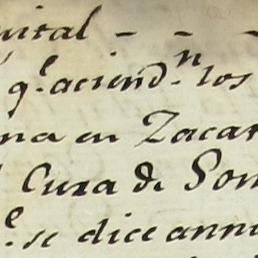 uital - - -
q.^e aciend.^n los
na en Zacar
Cura de Som
^e. se dice annu